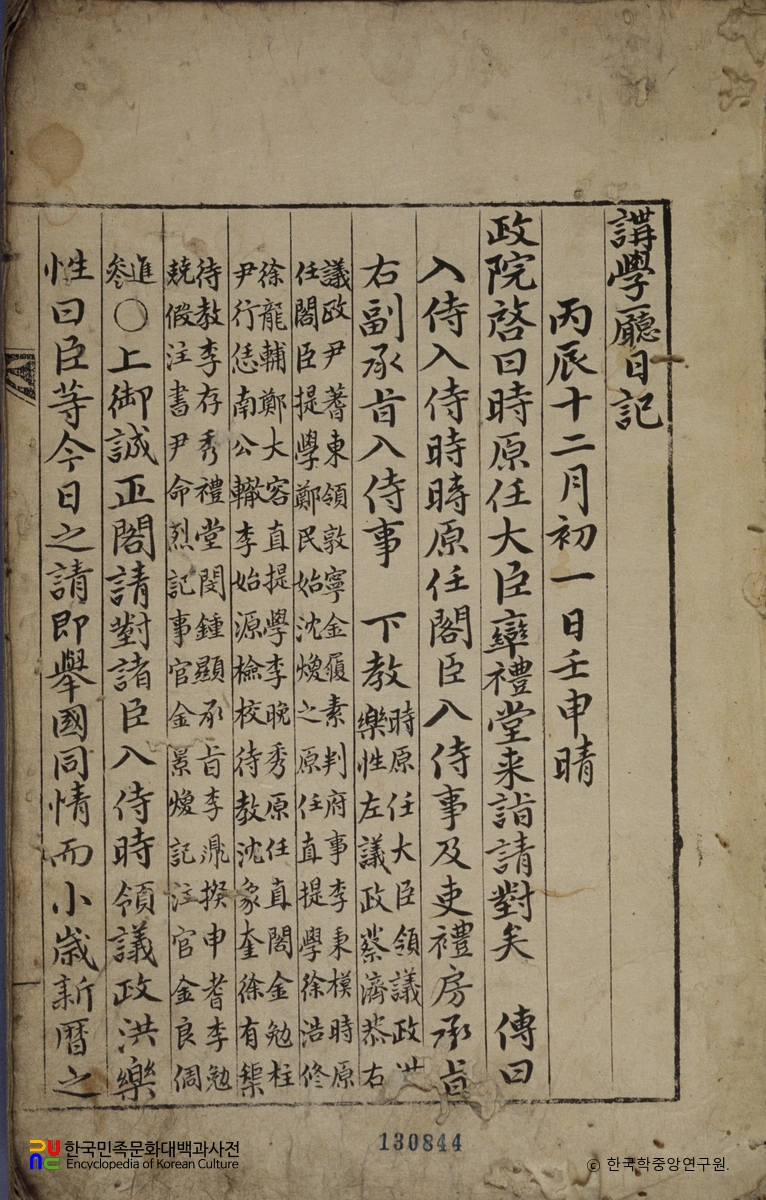 講學廳日記
丙辰十二月初一日壬申晴
政院啓曰時原任大臣率禮堂来詣請對矣 傳曰
入侍入侍時時原任閣臣入侍事及吏禮房承旨
右副承旨入侍事 下教 時原任大臣領議政洪
樂性左議政蔡濟恭右
議政尹蓍東領敦寧金履素判府事李秉模時原
任閣臣提學鄭民始沈煥之原任直提學徐浩修
徐龍輔鄭大容直提學李晚秀原任直閣金勉柱
尹行恁南公轍李始源檢校待教沈象奎徐有榘
待教李存秀禮堂閔鍾顯承旨李鼎揆申耆李勉
兢假注書尹命烈記事官金景煥記注官金良倜
進
參○上御誠正閣請對諸臣入侍時領議政洪樂
性曰臣等今日之請即擧國同情而小歲新曆之
한국민족문화대백과사전
Encyclopedia of Korean Culture
130844
© 한국학중앙연구원.